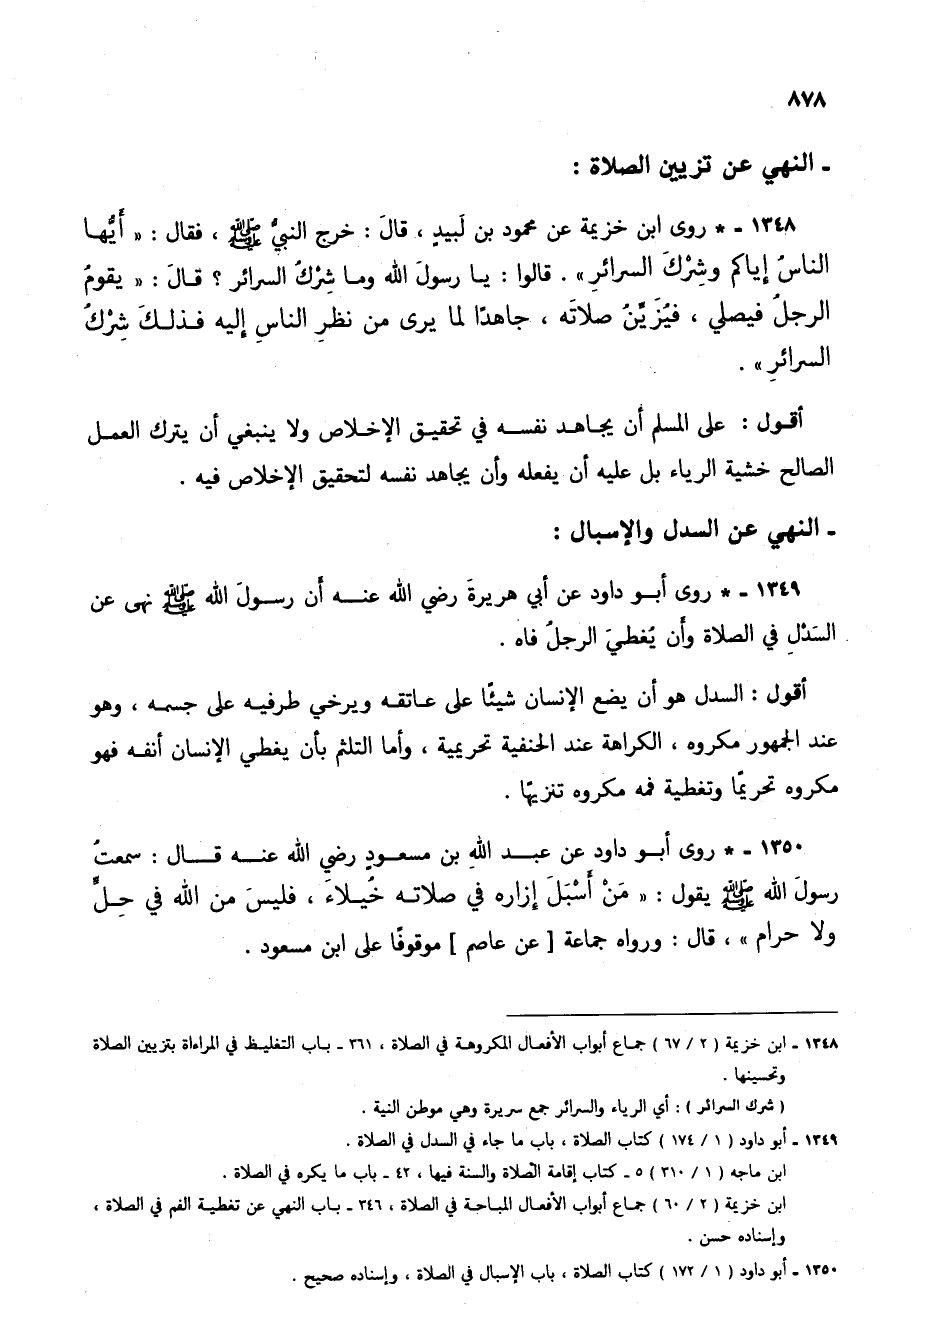 ٨٧٨
ـ النهي عن تزيين الصلاة :
١٣٤٨ ـ * روى ابن خزيمة عن محمود بن لَبيدٍ ، قالَ : خرج النبيُّ ﷺ ، فقال : « أَيُّها
الناسُ إياكم وشِركَ السرائرِ » . قالوا : يا رسولَ الله وما شِرْكُ السرائر ؟ قالَ : « يقومُ
الرجلُ فيصلي ، فيُزَيِّنُ صلاتَه ، جاهدًا لما يرى من نظرِ الناسِ إليه فذلكَ شِرْكُ
السرائرِ » .
أقول : على المسلم أن يجاهد نفسه في تحقيق الإخلاص ولا ينبغي أن يترك العمل
الصالح خشية الرياء بل عليه أن يفعله وأن يجاهد نفسه لتحقيق الإخلاص فيه .
ـ النهي عن السدل والإسبال :
١٣٤٩ ـ * روى أبو داود عن أبي هريرةَ رضي الله عنه أن رسولَ الله ﷺ نهى عن
السَدْلِ في الصلاة وأن يُغطيَ الرجلُ فاه .
أقول : السدل هو أن يضع الإنسان شيئًا على عاتقه ويرخي طرفيه على جسمه ، وهو
عند الجمهور مكروه ، الكراهة عند الحنفية تحريمية ، وأما التلثم بأن يغطي الإنسان أنفه فهو
مكروه تحريمًا وتغطية فمه مكروه تنزيهًا .
١٣٥٠ ـ * روى أبو داود عن عبد اللهِ بن مسعودٍ رضي الله عنه قال : سمعتُ
رسولَ الله ﷺ يقول : « مَنْ أَسْبَلَ إزاره في صلاته خُيلاءَ ، فليسَ من الله في حِلٍّ
ولا حرام » ، قال : ورواه جماعة [ عن عاصم ] موقوفًا على ابن مسعود .
١٣٤٨ ـ ابن خزيمة ( ٢ / ٦٧ ) جماع أبواب الأفعال المكروهة في الصلاة ، ٣٦١ ـ باب التغليظ في المراءاة بتزيين الصلاة
وتحسينها .
( شرك السرائر ) : أي الرياء والسرائر جمع سريرة وهي موطن النية .
١٣٤٩ ـ أبو داود ( ١ / ١٧٤ ) كتاب الصلاة ، باب ما جاء في السدل في الصلاة .
ابن ماجه ( ١ / ٣١٠ ) ٥ ـ كتاب إقامة الصلاة والسنة فيها ، ٤٢ ـ باب ما يكره في الصلاة .
ابن خزيمة ( ٢ / ٦٠ ) جماع أبواب الأفعال المباحة في الصلاة ، ٣٤٦ ـ باب النهي عن تغطية الفم في الصلاة ،
وإسناده حسن .
١٣٥٠ ـ أبو داود ( ١ / ١٧٢ ) كتاب الصلاة ، باب الإسبال في الصلاة ، وإسناده صحيح .